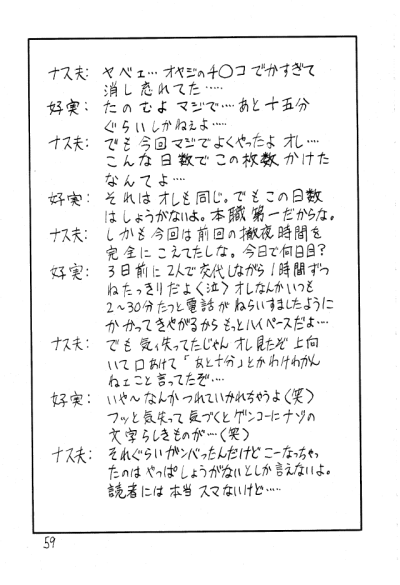 ナス夫: ヤベェ… オヤジの4〇コでかすぎて
消し忘れてた……
好実: たのむよマジで…. あと十五分
ぐらいしかねぇよ….
ナス夫: でも今回マジでよくやったよオレ….
こんな日数でこの枚数かけた
なんてよ….
好実: それはオレも同じ。でもこの日数
はしょうがないよ。本職第一だからな。
ナス夫: しかも今回は前回の徹夜時間を
完全にこえてたしな。今日で何日目?
好実: 3日前に2人で交代しながら1時間ずつ
ねたっきりだよ(泣)オレなんかいつも
2～30分たつと電話がねらいすましたように
かかってきやがるからもっとハイペースだよ….
ナス夫: でも気ィ失ってたじゃんオレ見たぞ上向
いて口あけて「あと十分」とかわけわかん
ねェこと言ってたぞ….
好実: いや～なんかつれていかれちうよ(笑)
フッと気失って気づくとゲンコーにナゾの
文字らしきものが…(笑)
ナス夫: それぐらいガンバったんだけどこーなっちゃっ
たのはやっぱしょうがないとしか言えないよ。
読者には本当スマないけど…..
59